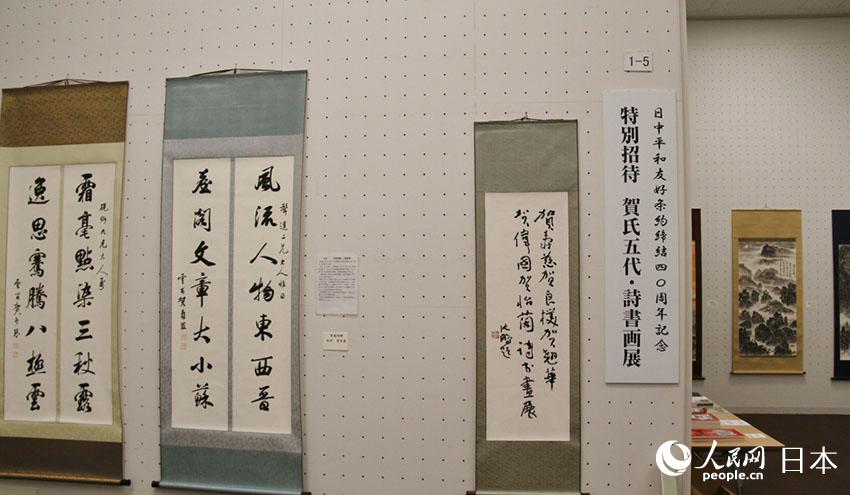 1-5
日中平和友好条約締結四〇周年記念
特別招待 賀氏五代・詩書画展
賀壽慈賀良樸賀翹華
賀偉國賀怡蘭詩書畫展
風流人物東西晉
臺閣文章大小蘇
霜毫點染三秋露
逸思騫騰八極雲
人民网 日本
people.cn